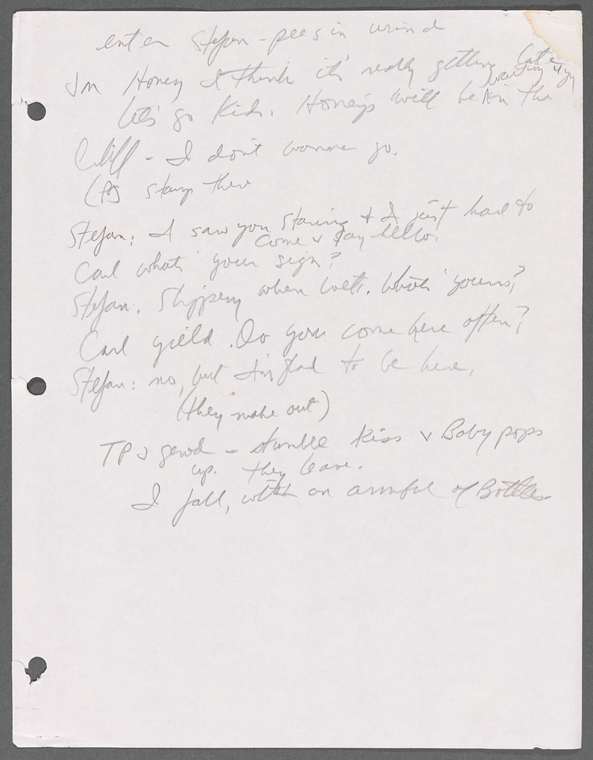 enter Stefan - pees in wind
Jm Honey I think it's really getting late
let's go Kids. Honeys will be in the
Cliff - I don't wanna go.
stay there
Stefan: I saw you staring & I just had to
come & say hello.
Carl what's your sign?
Stefan. Slippery when wett. Whats yours?
Carl yield. Do you come here often?
Stefan: no, but I'm glad to be here.
(they make out)
TP & - stumble kiss & Baby pops
up. they leave.
I fall, with an armful of Bottles